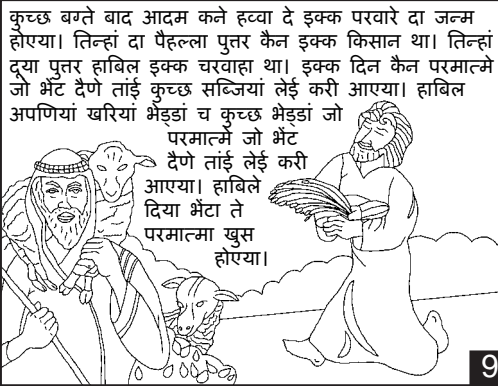 कुच्छ बग्ते बाद आदम कने हव्वा दे इक्क परवारे दा जन्म
होएया। तिन्हां दा पैहल्ला पुत्तर कैन इक्क किसान था। तिन्हां
दूया पुत्तर हाबिल इक्क चरवाहा था। इक्क दिन कैन परमात्मे
जो भेंट दैणे तांई कुच्छ सब्जियां लेई करी आएया। हाबिल
अपणियां खरियां भेड्डां च कुच्छ भेड्डां जो
परमात्मे जो भेंट
दैणे तांई लेई करी
आएया। हाबिले
दिया भेंटा ते
परमात्मा खुस
होएया।
9